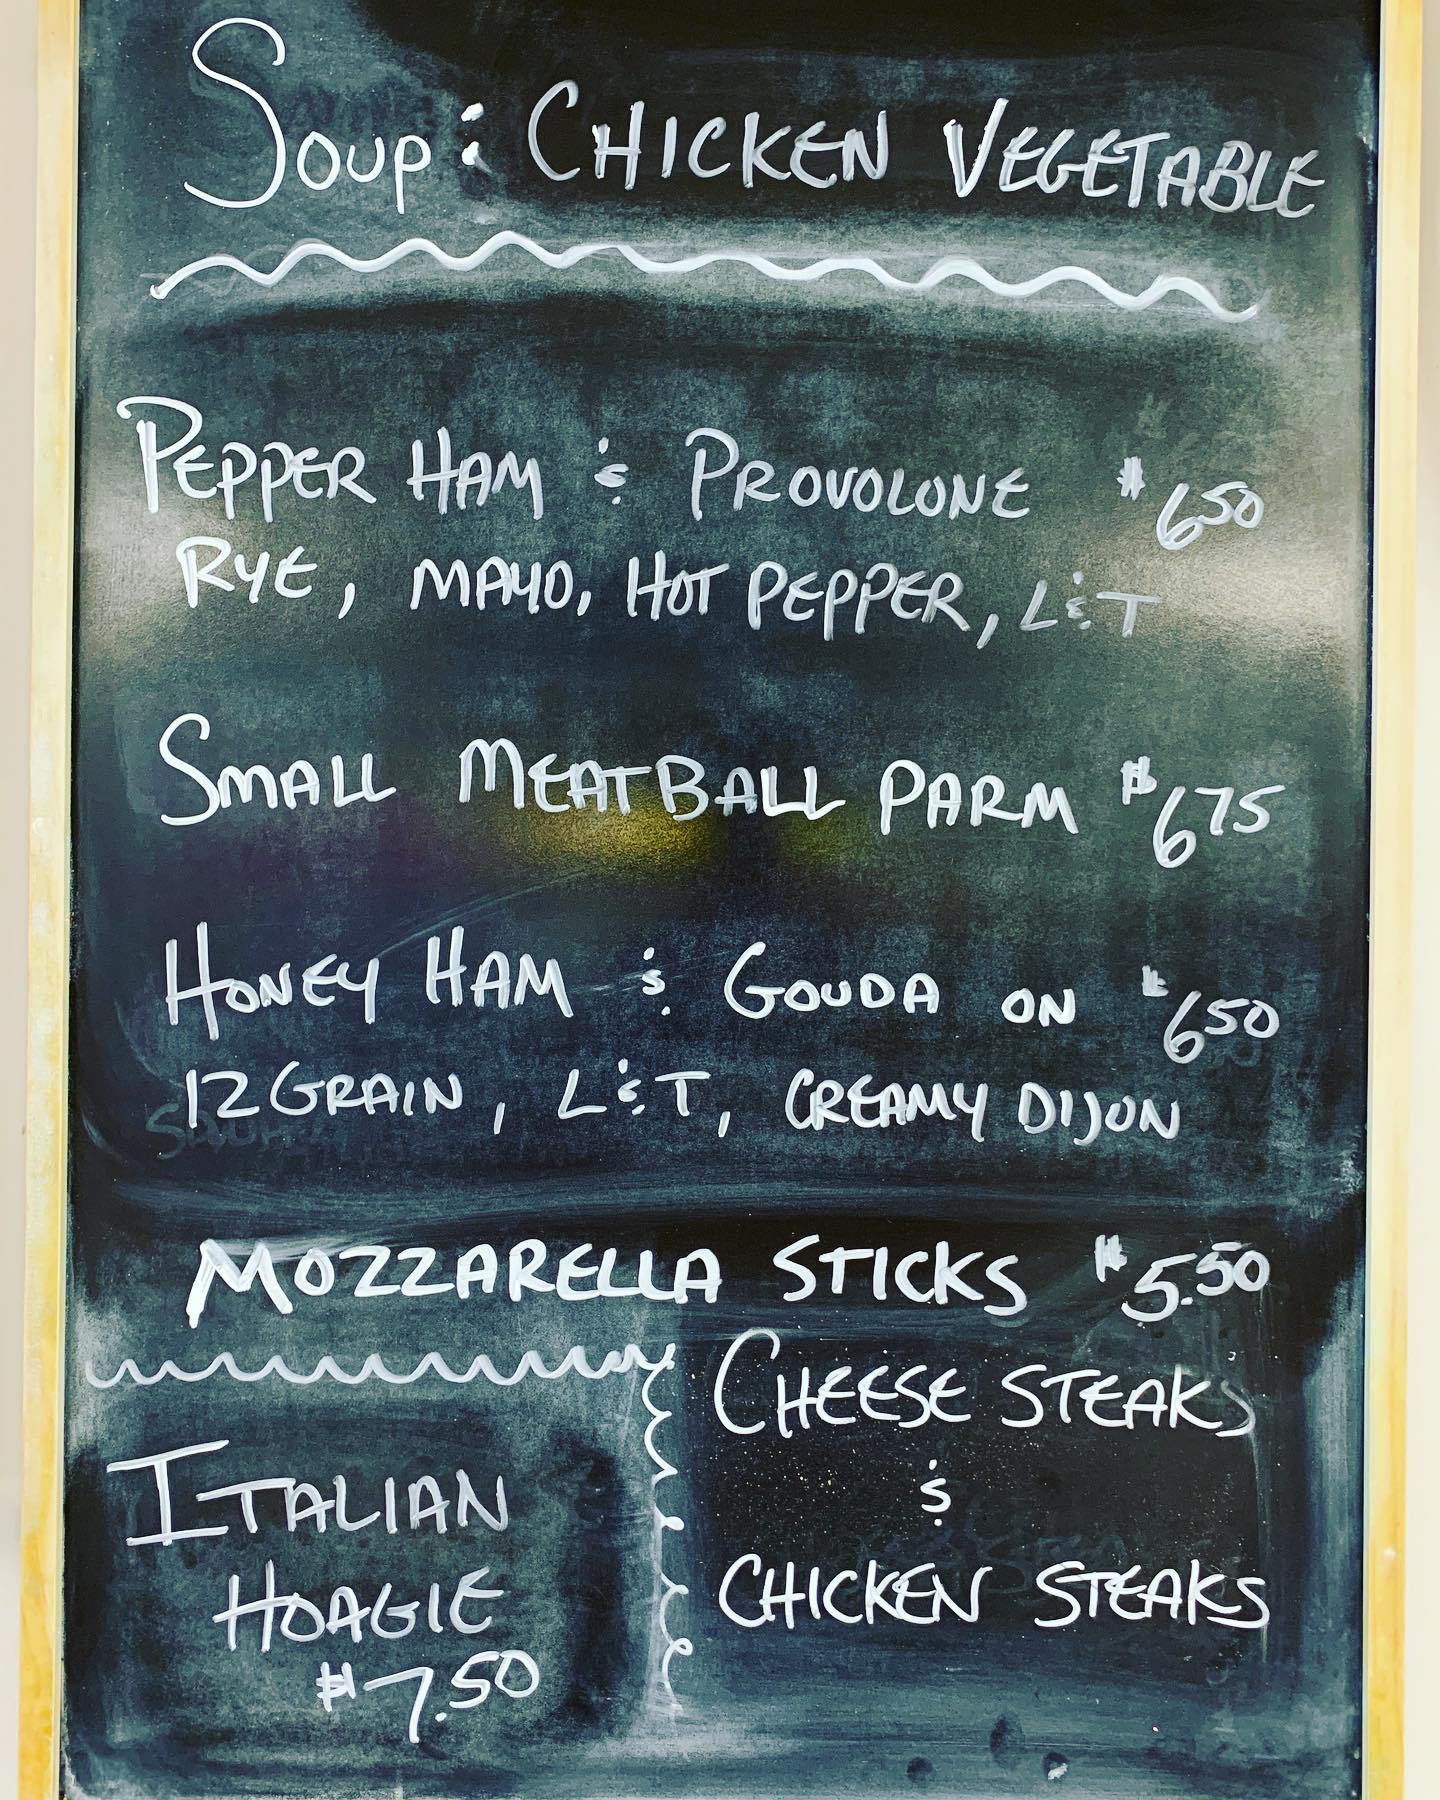 Soup: CHICKEN VEGETABLE
PEPPER HAM & PROVOLONE $6.50
RYE, MAYO, HOT PEPPER, L&T
SMALL MEATBALL PARM $6.75
HONEY HAM & GOUDA ON $6.50
12 GRAIN, L&T, CREAMY DIJON
MOZZARELLA STICKS $5.50
CHEESE STEAKS
&
CHICKEN STEAKS
ITALIAN
HOAGIE
$7.50